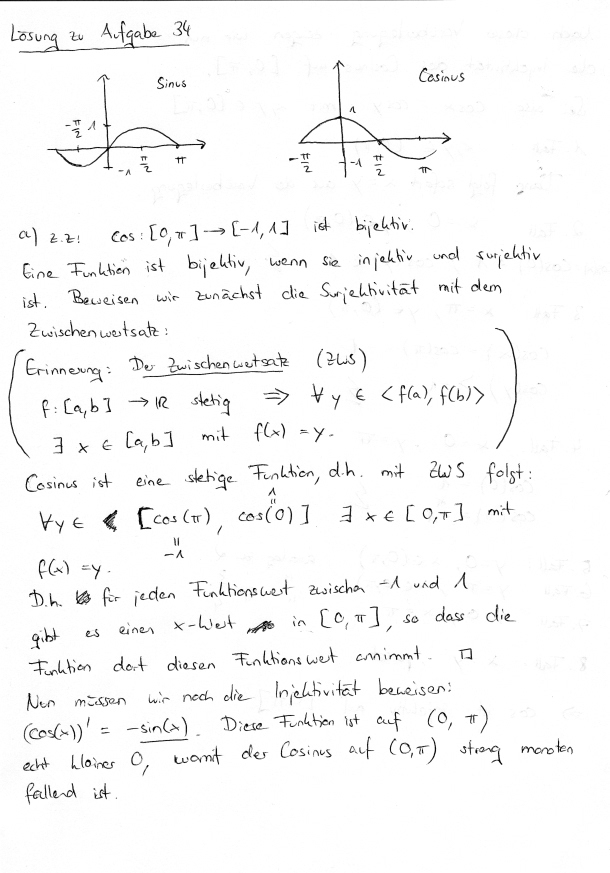 Lösung zu Aufgabe 34
Sinus
-π/2 1
-1 π/2 π
Cosinus
1
-π/2 -1 π/2 π
a) z.z: cos: [0,π] → [-1,1] ist bijektiv.
Eine Funktion ist bijektiv, wenn sie injektiv und surjektiv
ist. Beweisen wir zunächst die Surjektivität mit dem
Zwischenwertsatz:
(Erinnerung: Der Zwischenwertsatz (ZWS)
f: [a,b] → ℝ stetig ⇒ ∀ y ∈ <f(a), f(b)>
∃ x ∈ [a,b] mit f(x) = y.)
Cosinus ist eine stetige Funktion, d.h. mit ZWS folgt:
1
=
∀y ∈ [cos(π), cos(0)] ∃ x ∈ [0,π] mit
=
-1
f(x) = y.
D.h. für jeden Funktionswert zwischen -1 und 1
gibt es einen x-Wert in [0,π], so dass die
Funktion dort diesen Funktionswert annimmt. □
Nun müssen wir noch die Injektivität beweisen:
(cos(x))' = -sin(x). Diese Funktion ist auf (0, π)
echt kleiner 0, womit der Cosinus auf (0,π) streng monoton
fallend ist.